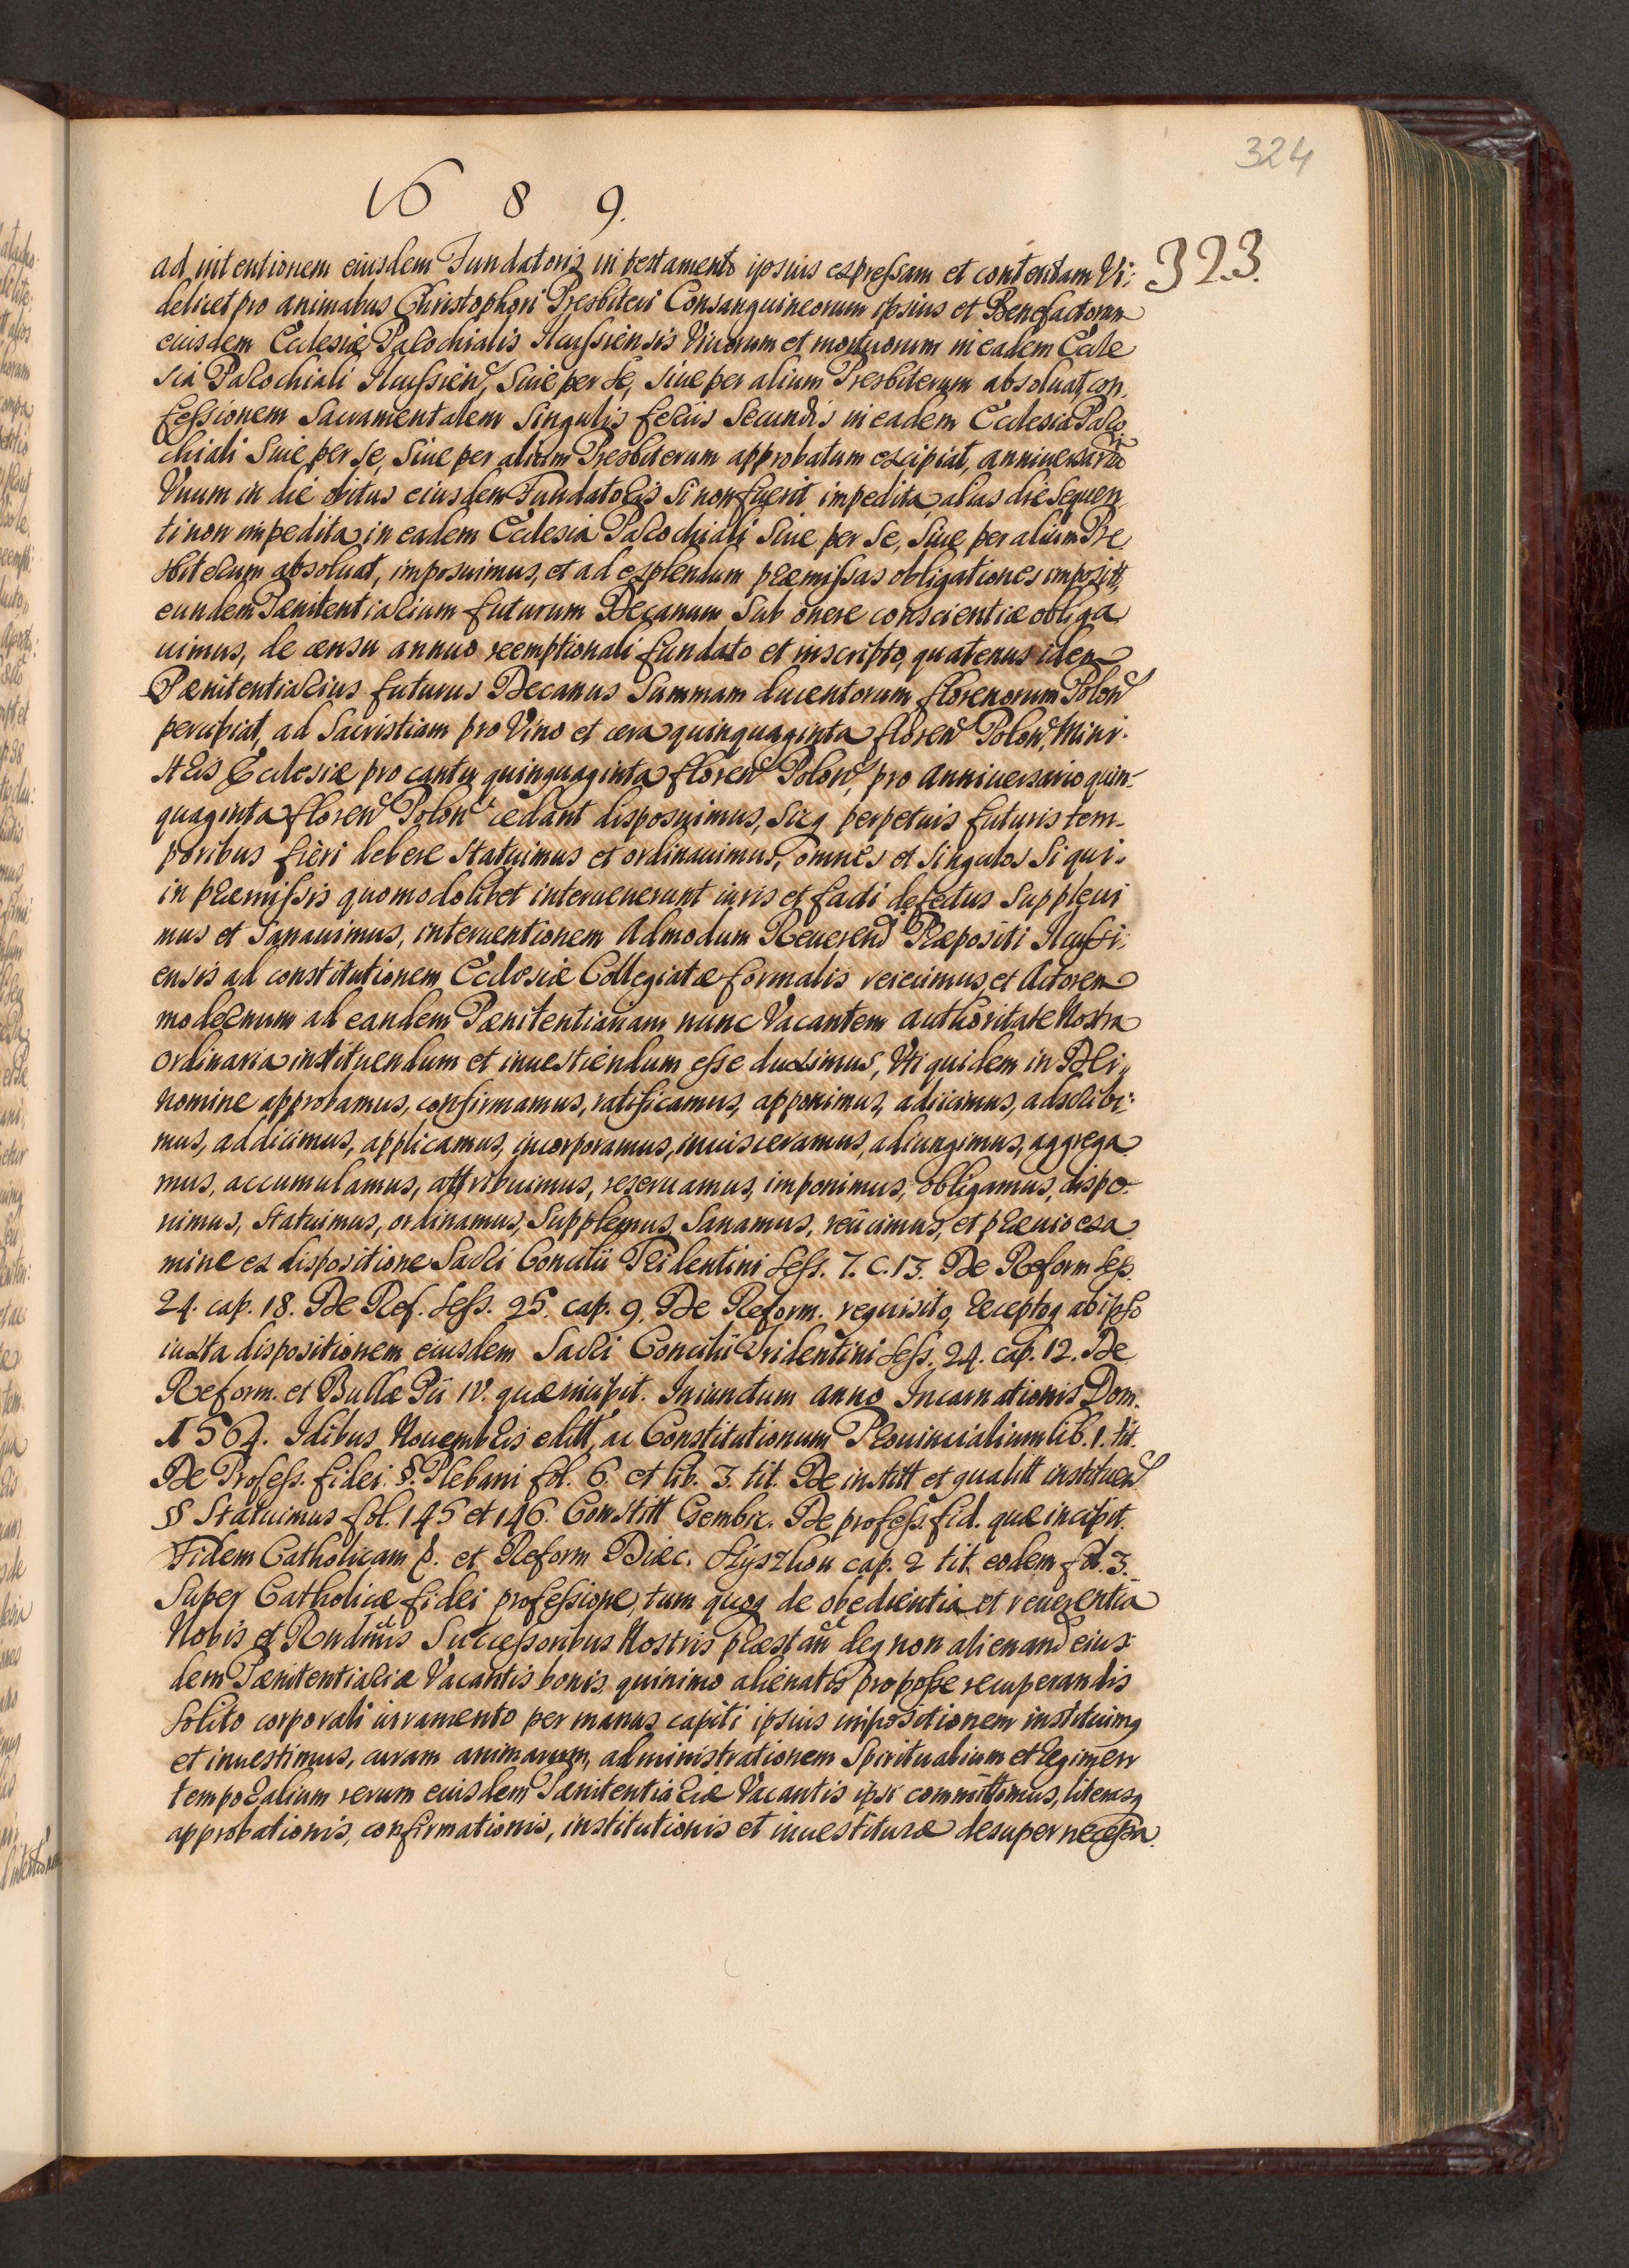 324
1689.
323.
ad intentionem eiusdem Fundatoris in testamento ipsius expressam et contentam Vi:
delicet pro animabus Christophori Presbiteri Consanguineorum ipsius et Benefactorum
eiusdem Ecclesiæ Parochialis Ilcussiensis Viuorum et mortuorum in eadem Eccle
sia Parochiali Ilcussien, siue per se, siue per alium Presbiterum absoluat, con,
fessionem Sacramentalem singulis ferijs secundis in eadem Ecclesia Paro,
chiali siue per se, siue per alium Presbiterum approbatum excipiat, anniuersariu
Vnum in die obitus eiusdem Fundatoris si non fuerit impedita alias die sequen
ti non impedita in eadem Ecclesia Parochiali siue per se, siue per alium Pre
sbiterum absoluat, imposuimus, et ad explendum præmissas obligationes impositt,
eundem Pænitentiarium futurum Decanum sub onere conscientiæ obliga
uimus, de censu annuo reemptionali fundato et inscripto, quatenus idem
Pænitentiarius futurus Decanus Summam ducentorum florenorum Polon
percipiat, ad Sacristiam pro Vino et cera quinquaginta floren Polon, Mini-
stris Ecclesiæ pro cantu quinquaginta floren Polon, pro Anniuersario quin-
quaginta floren Polon cedant disposuimus, sicq perpetuis futuris tem-
poribus fieri debere statuimus et ordinauimus, omnes et singulos si qui.
in præmissis quomodolibet interuenerunt iuris et facti defectus suppleui
mus et Sanauimus, interuentionem Admodum Reuerend Præpositi Ilcussi:
ensis ad constitutionem Ecclesiæ Collegiatæ formalis reiecimus, et Actorem
modernum ad eandem Pænitentiariam nunc Vacantem authoritate Nostra
ordinaria instituendum et inuestiendum esse duximus, Vti quidem in DEi,
Nomine approbamus, confirmamus, ratificamus, apponimus, adiicimus, adscribi:
mus, addicimus, applicamus, incorporamus, inuisceramus, adiungimus, aggrega
mus, accumulamus, attribuimus, reseruamus, imponimus, obligamus, dispo-
nimus, statuimus, ordinamus, Supplemus, Sanamus, reiicimus, et præuio exa
mine ex dispositione Sacri Concilii Tridentini Sess. 7. C. 13. De Reform Ses.
24. cap. 18. De Ref. Sess. 25. cap. 9. De Reform. requisito, receptoq ab ipso
iuxta dispositionem eiusdem Sacri Concilii Tridentini Sess. 24. cap. 12. De
Reform. et Bullæ Pii IV. quæ incipit. Iniunctum anno Incarnationis Dom.
1564. Idibus Nouembris editt, ac Constitutionum Prouincialium lib. 1. tit.
De Profess. fidei. §. Plebani fol. 6. et lib. 3. tit. De institt et qualitt instituen
§ Statuimus fol. 145 et 146. Constitt Gembic. De profess. fid. quæ incipit.
Fidem Catholicam §. et Reform Diæc. Szyszkou cap. 2 tit. eodem fol. 3.
Super Catholicæ fidei professione, tum quoq de obedientia et reuerentia
Nobis et Rndmis Successoribus Nostris præstan deq non alienand eius
dem Pænitentiariæ Vacantis bonis, quinimo alienatis pro posse recuperandis
solito corporali iuramento per manus capiti ipsius impositionem instituimq
et inuestimus, curam animarum, administrationem Spiritualium et regimen
temporalium rerum eiusdem Pænitentiariæ Vacantis ipsi committimus, literasq
approbationis, confirmationis, institutionis et inuestituræ desuper necessa.